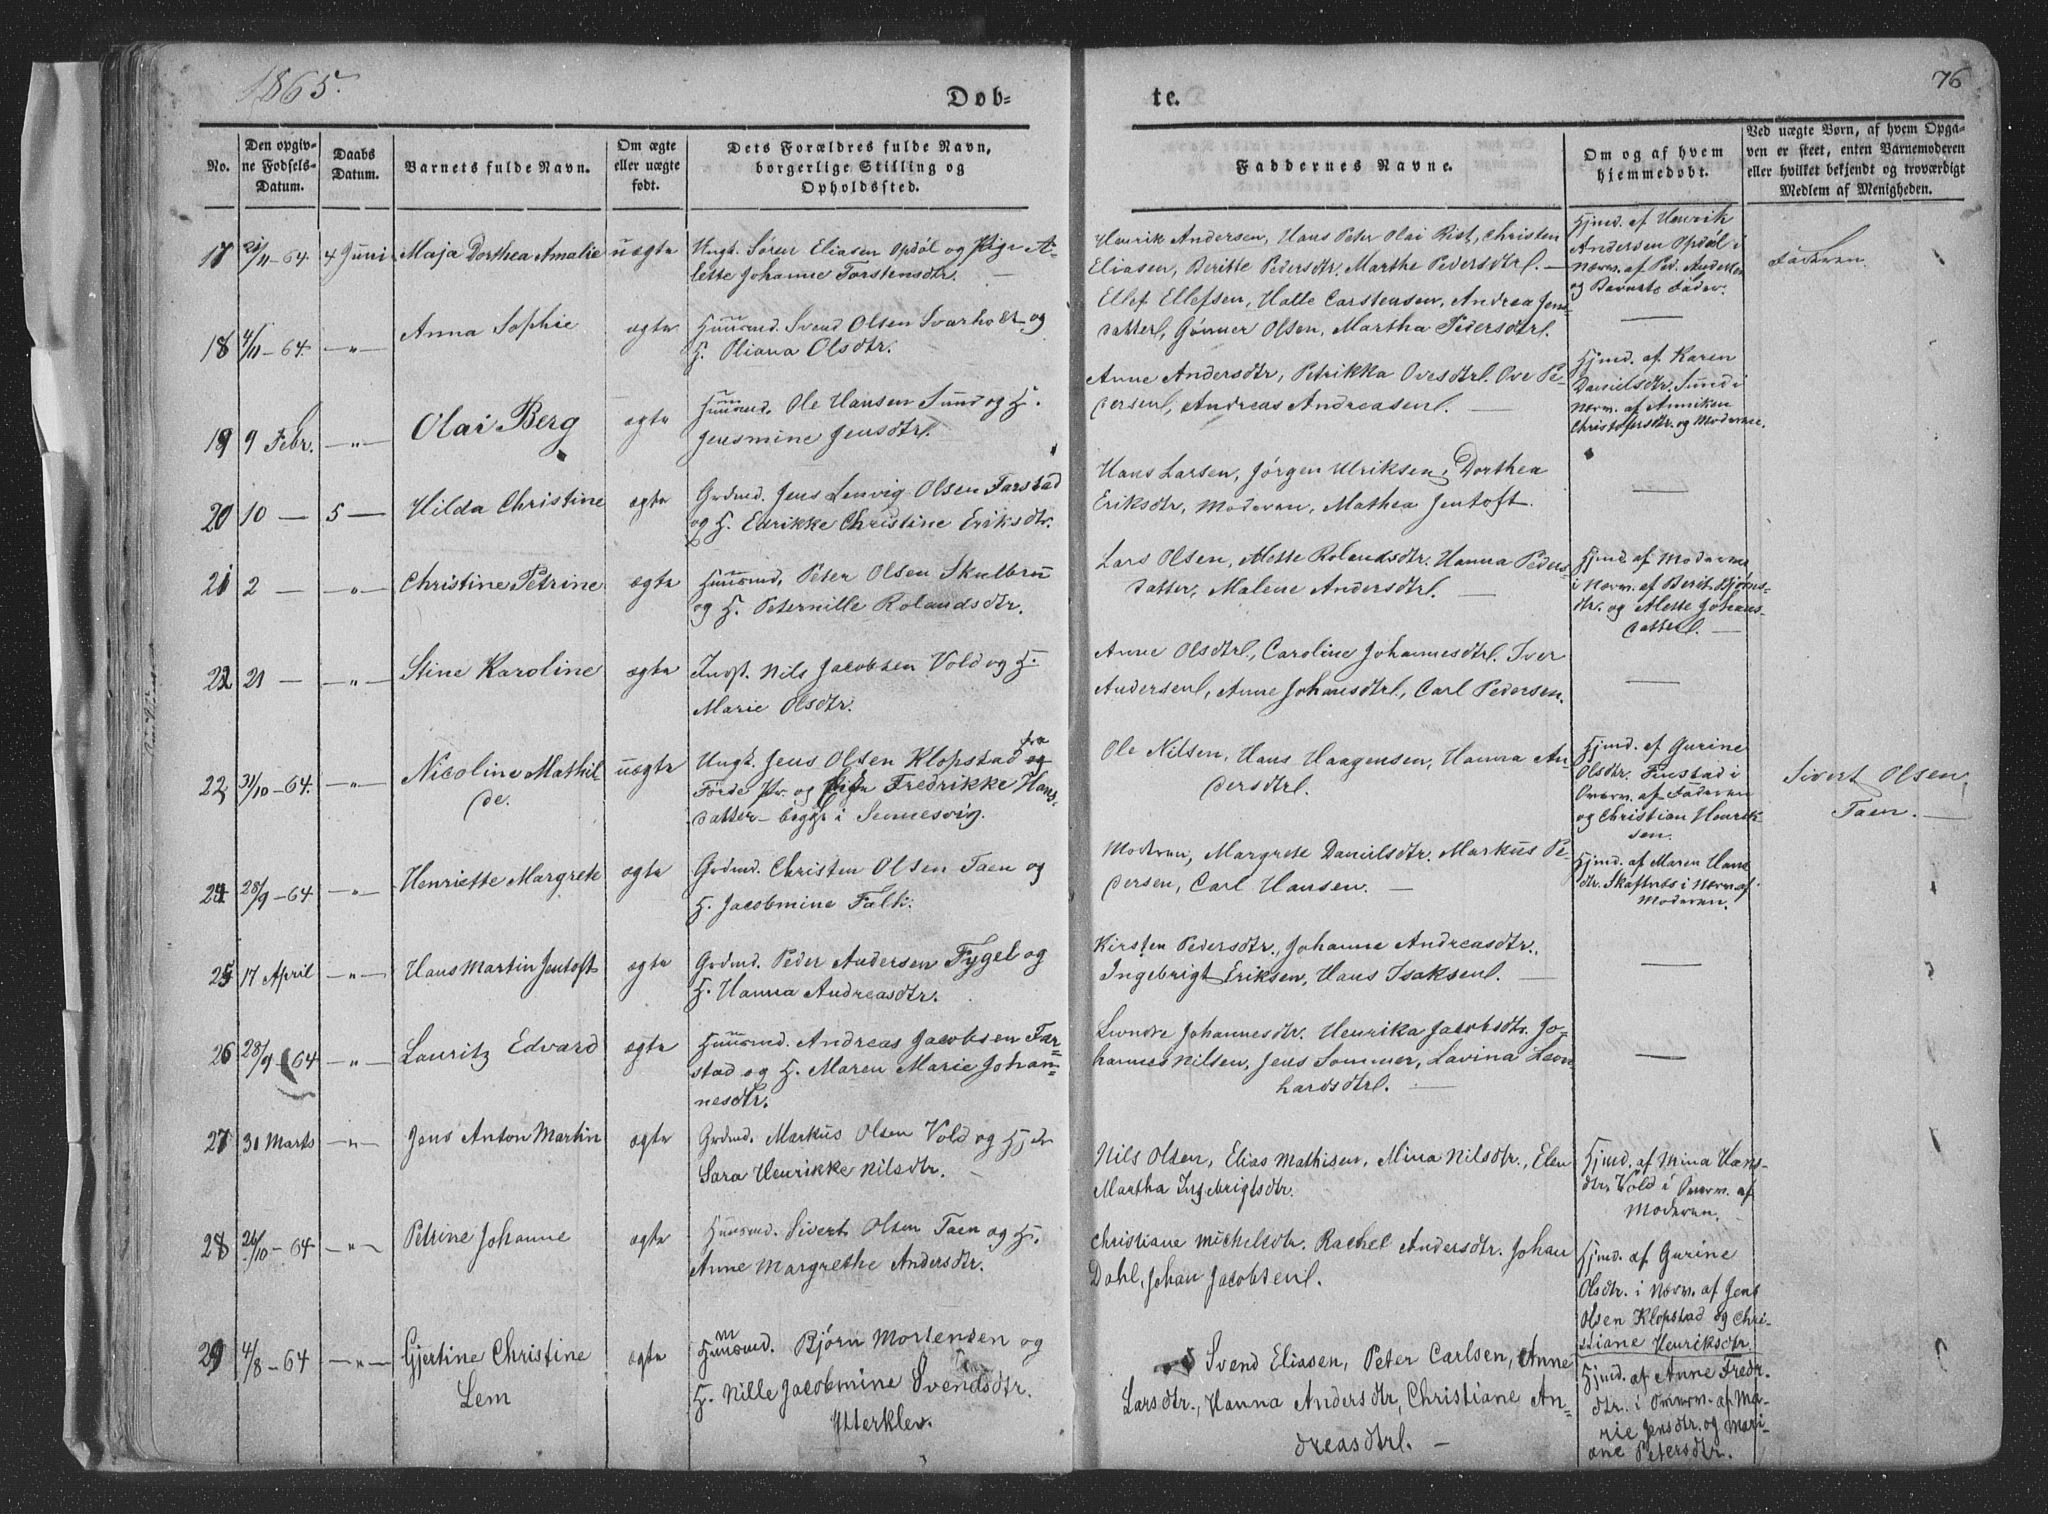 1865.
Døb-
te.
76
No.
Den opgiv-
ne Fødsels-
Datum.
Daabs
Datum.
Barnets fulde Navn.
Om ægte
eller uægte
født.
Dets Forældres fulde Navn,
borgerlige Stilling og
Opholdssted.
Faddernes Navne.
Om og af hvem
hjemmedøbt.
Ved uægte Børn, af hvem Opga-
ven er skeet, enten Barnemoderen
eller hvilket bekjendt og troværdigt
Medlem af Menigheden.
17 21/11-64. 4 Juni Maja Dorthea Amalie uægte Ungk. Søren Eliasen Opdøl og Pige A-
lette Johanne Torstensdtr. —
Henrik Andersen, Hans Peter Olai Rist, Christen
Eliasen, Beritte Pedersdtr. Marthe Pedersdtr. —
Hjmd. af Henrik
Andersen Opdøl i
Nærv. af Ped. Andersen
og Barnets Fader.
Faderen.
18 4/11-64. —"— Anna Sophie ægte Huusmd. Svend Olsen Svarholt og
H. Oliana Olsdtr.
Ellef Ellefsen, Halte Carstensen, Andrea Jens
datter, Gunner Olsen, Martha Pedersdtr.
—
19 9 Febr. —"— Olai Berg ægte Huusmd. Ole Hansen Sund og H.
Jensmine Jensdtr.
Anne Andersdtr, Petrikka Ovesdtr. Ove Pe-
dersen, Andreas Andreasen. —
Hjmd. af Karen
Danielsdtr. Sund i
Nærv. af Anniken
Christophersdtr. og Moderen.
20 10 — 5 — Hilda Christine ægte Grdmd. Jens Lenvig Olsen Farstad
og H. Edrikke Christine Eriksdtr.
Hans Larsen, Jørgen Ulriksen, Dorthea
Eriksdtr, Moderen, Mathea Jentoft.
—
21 2 — —"— Christine Petrine ægte Huusmd. Peter Olsen Skulbru
og H. Peternille Rolandsdtr.
Lars Olsen, Mette Rolandsdtr. Hanna Peders-
datter, Malene Andersdtr. —
Hjmd. af Moderen
i Nærv. af Berit Bjørns-
dtr. og Mette Johans-
datter. —
22 21 — —"— Stine Karoline ægte Indst. Nils Jacobsen Vold og H.
Marie Olsdtr.
Anne Olsdtr., Caroline Johannesdtr. Iver
Andersen, Anne Johansdtr, Carl Pedersen.
—
22, 31/10-64. —"— Nicoline Mathil
de. uægte Ungk. Jens Olsen Klopstad fra
Förde Pr. og Pige Fredrikke Hans-
datter — begge i Sennesvig.
Ole Nilsen, Hans Haagensen, Hanna An-
dersdtr.
Hjmd. af Gurine
Olsdtr. Finstad i
Overv. af Faderen
og Christian Henrik-
sen.
Sivert Olsen
Taen. —
24 28/9-64 —"— Henriette Margrete ægte Grdmd. Christen Olsen Taen og
H. Jacobmine Falk.
Moderen, Margrete Danielsdtr. Markus Pe-
dersen, Carl Hansen. —
Hjmd. af Maren Hans
dtr. Skaftnes i Nærv. af
Moderen.
25 17 April —"— Hans Martin Jentoft ægte Grdmd. Peder Andersen Fygel og
H. Hanna Andreasdtr.
Kirsten Pedersdtr., Johanne Andreasdtr.,
Ingebrigt Eriksen, Hans Isaksen. —
—
26 28/9-64 —"— Lauritz Edvard ægte Huusmd. Andreas Jacobsen Far-
stad og H. Maren Marie Johan-
nesdtr.
Johannesdtr. Henrika Jacobsdtr. Jo-
hannes Nilsen, Jens Sommer, Lavina Leon
hardsdtr. —
—
27 31 Marts —"— Jens Anton Martin ægte Grdmd. Markus Olsen Vold og
Sara Henrikke Nilsdtr.
Nils Olsen, Elias Mathisen, Mina Nilsdtr., Elen
Martha Ingebrigtsdtr.
Hjmd. af Mina Hans-
dtr. Vold i Overv. af
Moderen.
28 26/10-64 —"— Petrine Johanne ægte Huusmd. Sivert Olsen Taen og H.
Anne Margrethe Andersdtr.
Christiane Michelsdtr. Rachel Andersdtr. Johan
Dahl, Johan Jacobsen.
Hjmd. af Gurine
Olsdtr. i Nærv. af Jens
Olsen Klopstad og Chri-
stiane Henriksdtr.
29 4/8-64 —"— Gjertine Christine
Lem ægte Huusmd. Bjørn Mortensen og
H. Nille Jacobmine Svendsdtr.
Ytterklev.
Svend Eliasen, Peter Carlsen, Anne
Larsdtr., Hanna Andersdtr, Christiane An-
dreasdtr. —
Hjmd. af Anne Fredr.
dtr. i Overv. af Ma-
rie Jensdtr. og Mari-
ane Petersdtr.